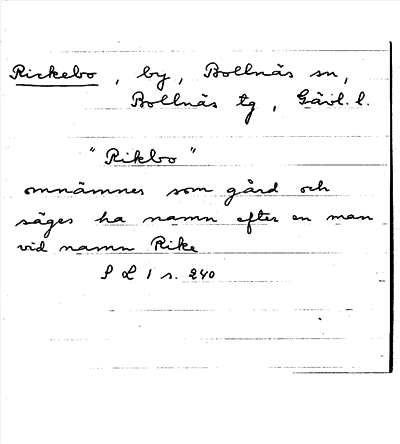 Rickebo, by, Bollnäs sn,
Bollnäs tg, Gävl. l.
"Rikbo"
omnämnes som gård och
säges ha namn efter en man
vid namn Rike
S L 1 s. 240